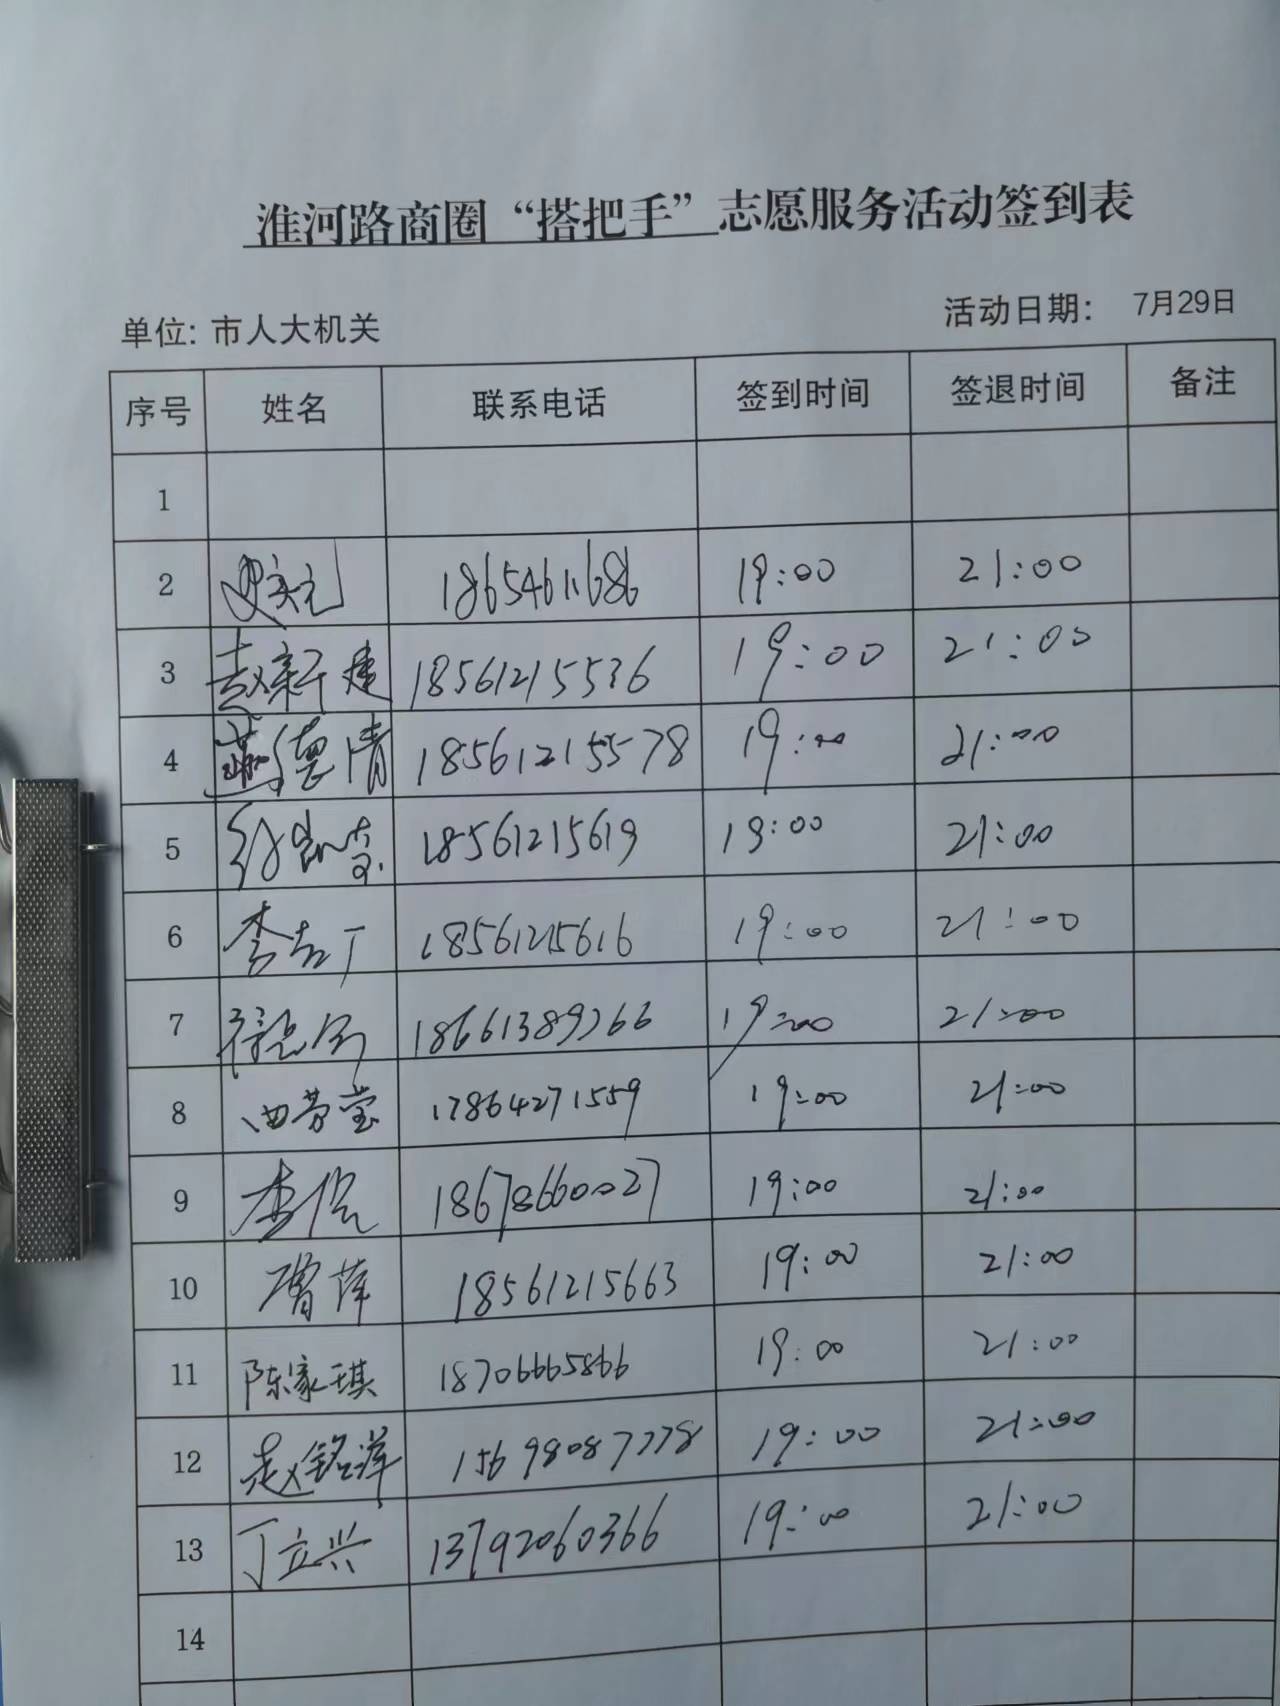 淮河路商圈“搭把手”志愿服务活动签到表
单位: 市人大机关 活动日期: 7月29日
序号 姓名 联系电话 签到时间 签退时间 备注
1
2 18654611686 19:00 21:00
3 赵新建 18561215536 19:00 21:00
4 燕德清 18561215578 19:00 21:00
5 18561215619 19:00 21:00
6 18561215616 19:00 21:00
7 18661389366 19:00 21:00
8 曲芳莹 17864271559 19:00 21:00
9 18678660027 19:00 21:00
10 18561215663 19:00 21:00
11 陈家琪 18706665866 19:00 21:00
12 赵铭洋 15698087778 19:00 21:00
13 丁立兴 13792060366 19:00 21:00
14